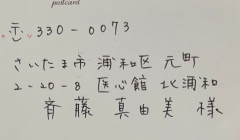 postcard
〒330-0073
さいたま市 浦和区 元町
2-20-8 医心館 北浦和
斉藤 真由美 様